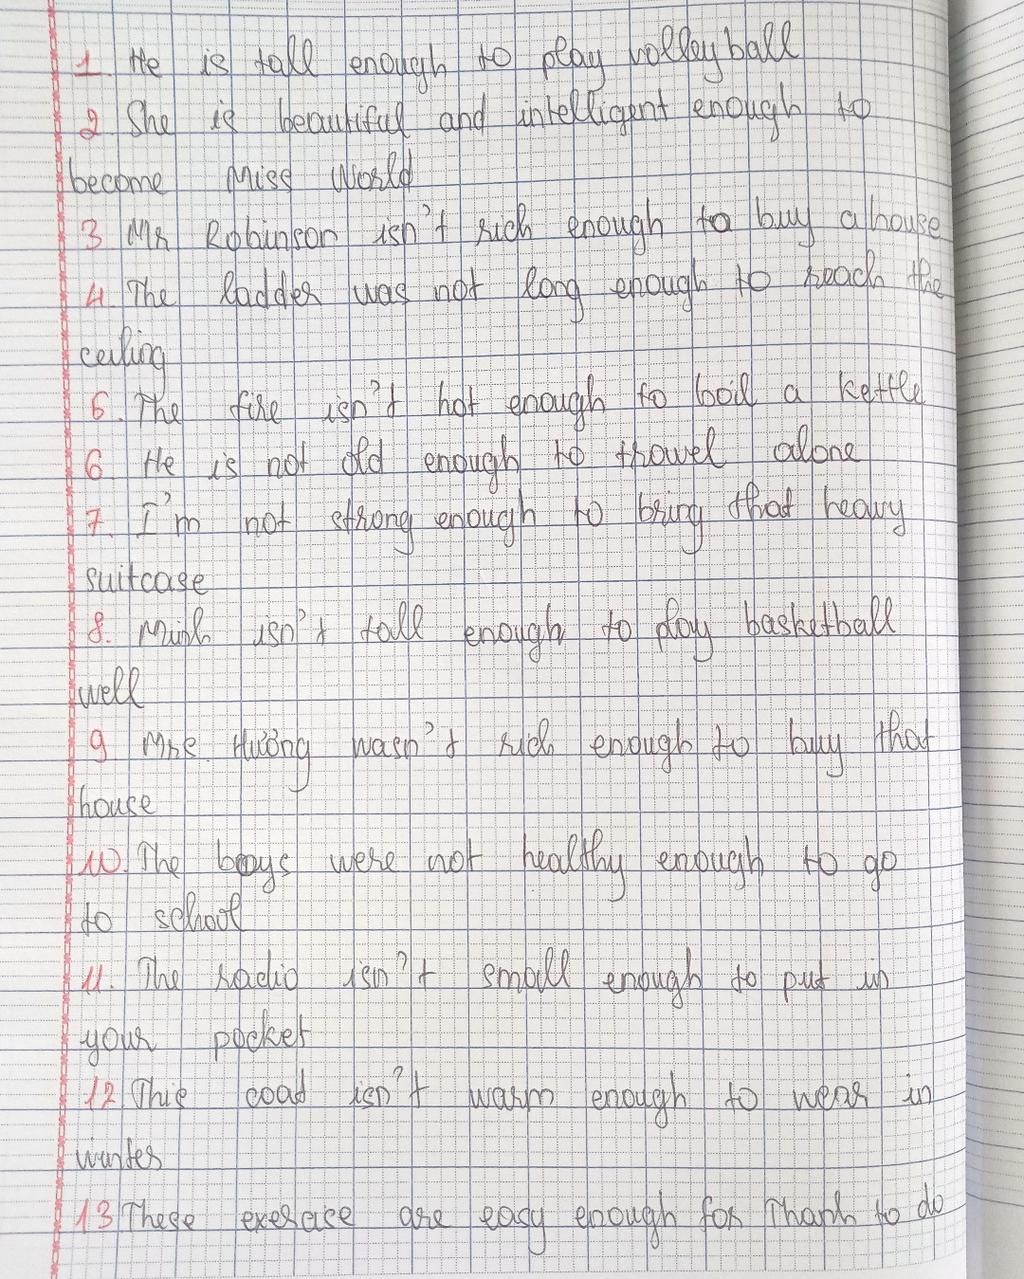 1. He is tall enough to play volleyball
2. She is beautiful and intelligent enough to
become Miss World
3 Mr Robinson isn't rich enough to buy a house
4. The ladder was not long enough to reach the
ceiling
5. The fire isn't hot enough to boil a kettle
6 He is not old enough to travel alone
7. I'm not strong enough to bring that heavy
suitcase
8. Minh isn't tall enough to play basketball
well
9 Mrs. Hương wasn't rich enough to buy that
house
10. The boys were not healthy enough to go
to school
11. The radio isn't small enough to put in
your pocket
12 This coat isn't warm enough to wear in
winter
13 These exercise are easy enough for Thanh to do